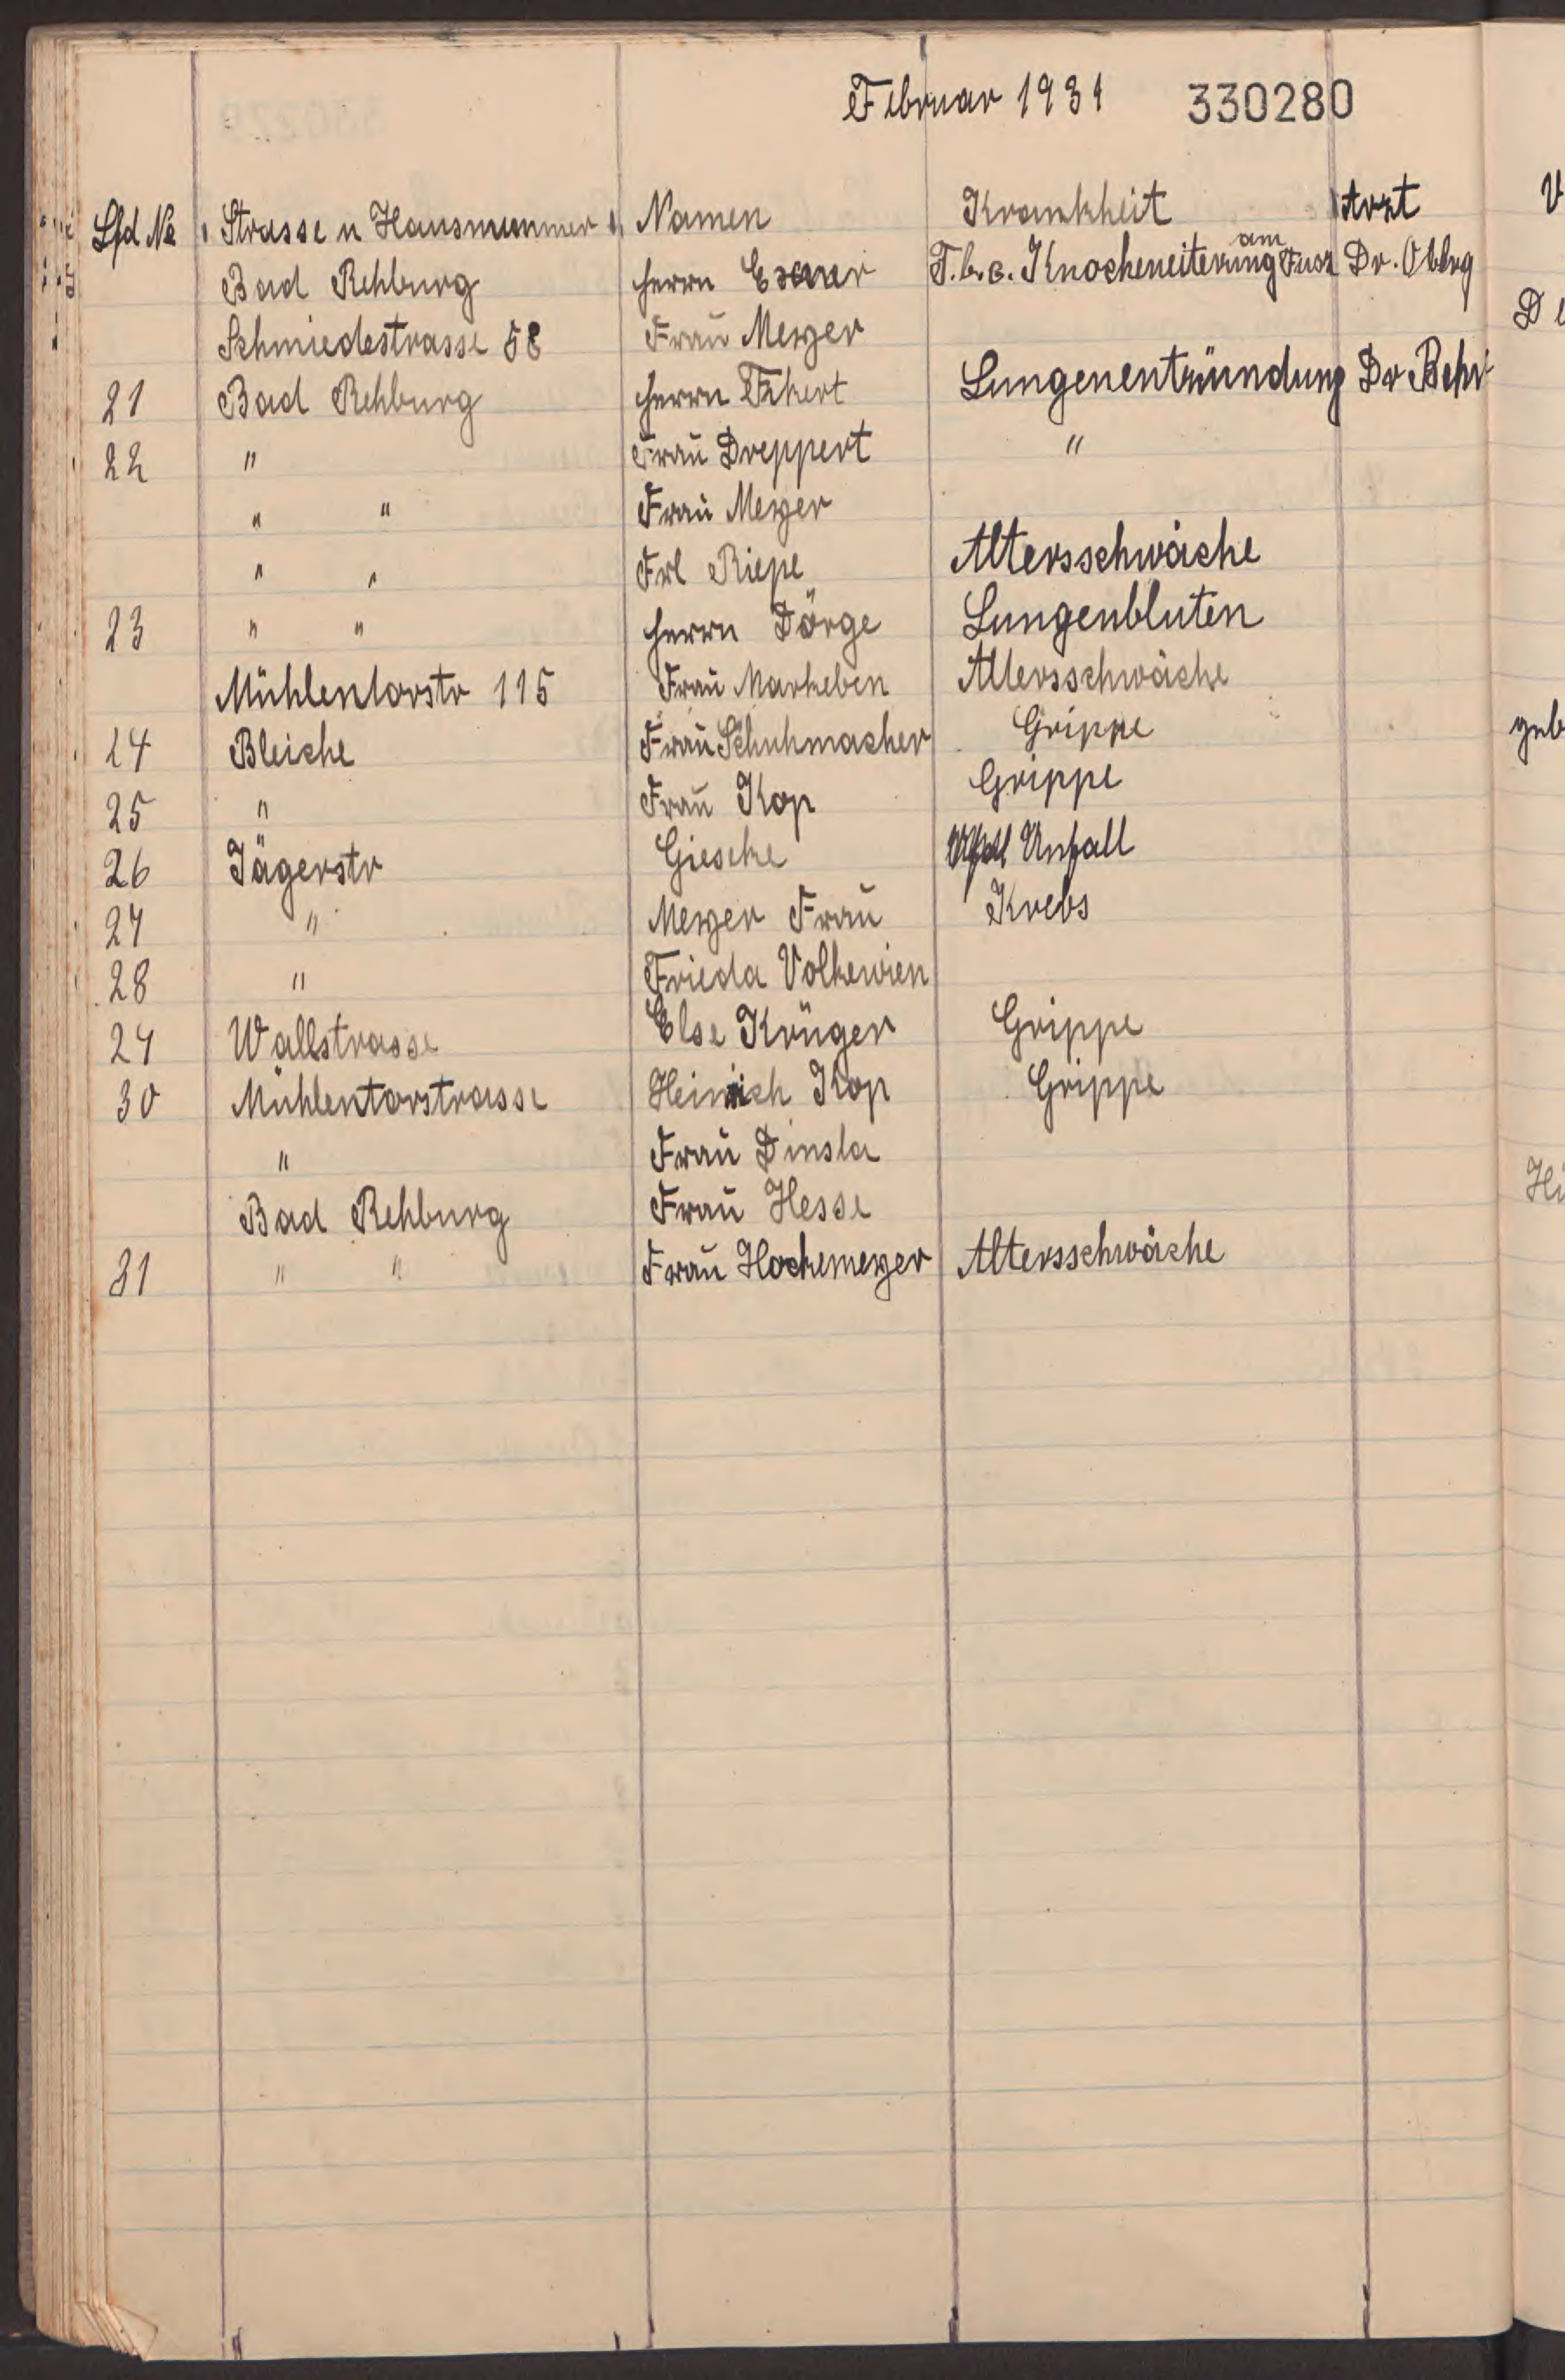 Februar 1931 330280
Lfd No Strasse u Hausnummer Namen Krankheit Arzt
Bad Rehburg Herrn T.b.c. Knocheneiterung am Fusz Dr.
Schmiedestrasse 58 Frau Meyer
21 Bad Rehburg Herrn Lungenentzündung Dr
22 " Frau Dreppert "
" " Frau Meyer
" " Frl Riepe Altersschwäche
23 " " Herrn Dörge Lungenbluten
Mühlentorstr 115 Frau Markeben Altersschwäche
24 Bleiche Frau Schuhmacher Grippe
25 " Frau Kop Grippe
26 Jägerstr Gieseke Unfall
27 " Meyer Frau Krebs
28 " Frieda Volkewien
29 Wallstrasse Else Krüger Grippe
30 Mühlentorstrasse Heinrich Kop Grippe
" Frau Dinsla
Bad Rehburg Frau Hesse
31 " " Frau Hockemeyer Altersschwäche